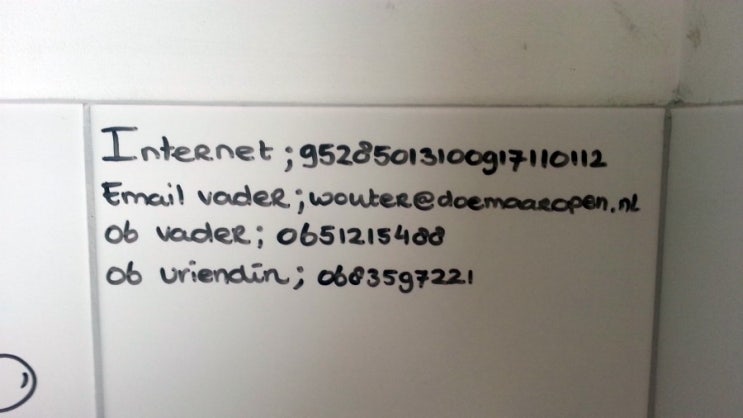 Internet; 95285013100917110112
Email vader; wouter@doemaaropen.nl
06 vader; 0651215488
06 vriendin; 0683597221